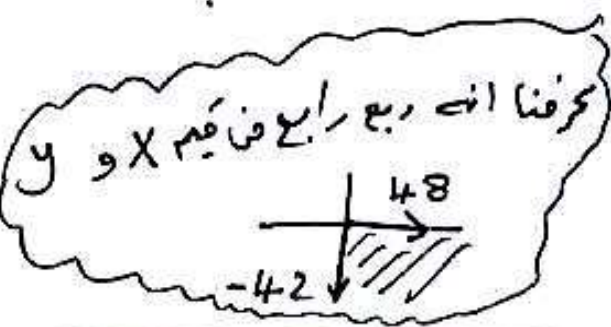 عرفنا انه ربع رابع من قيم X و y
48
-42